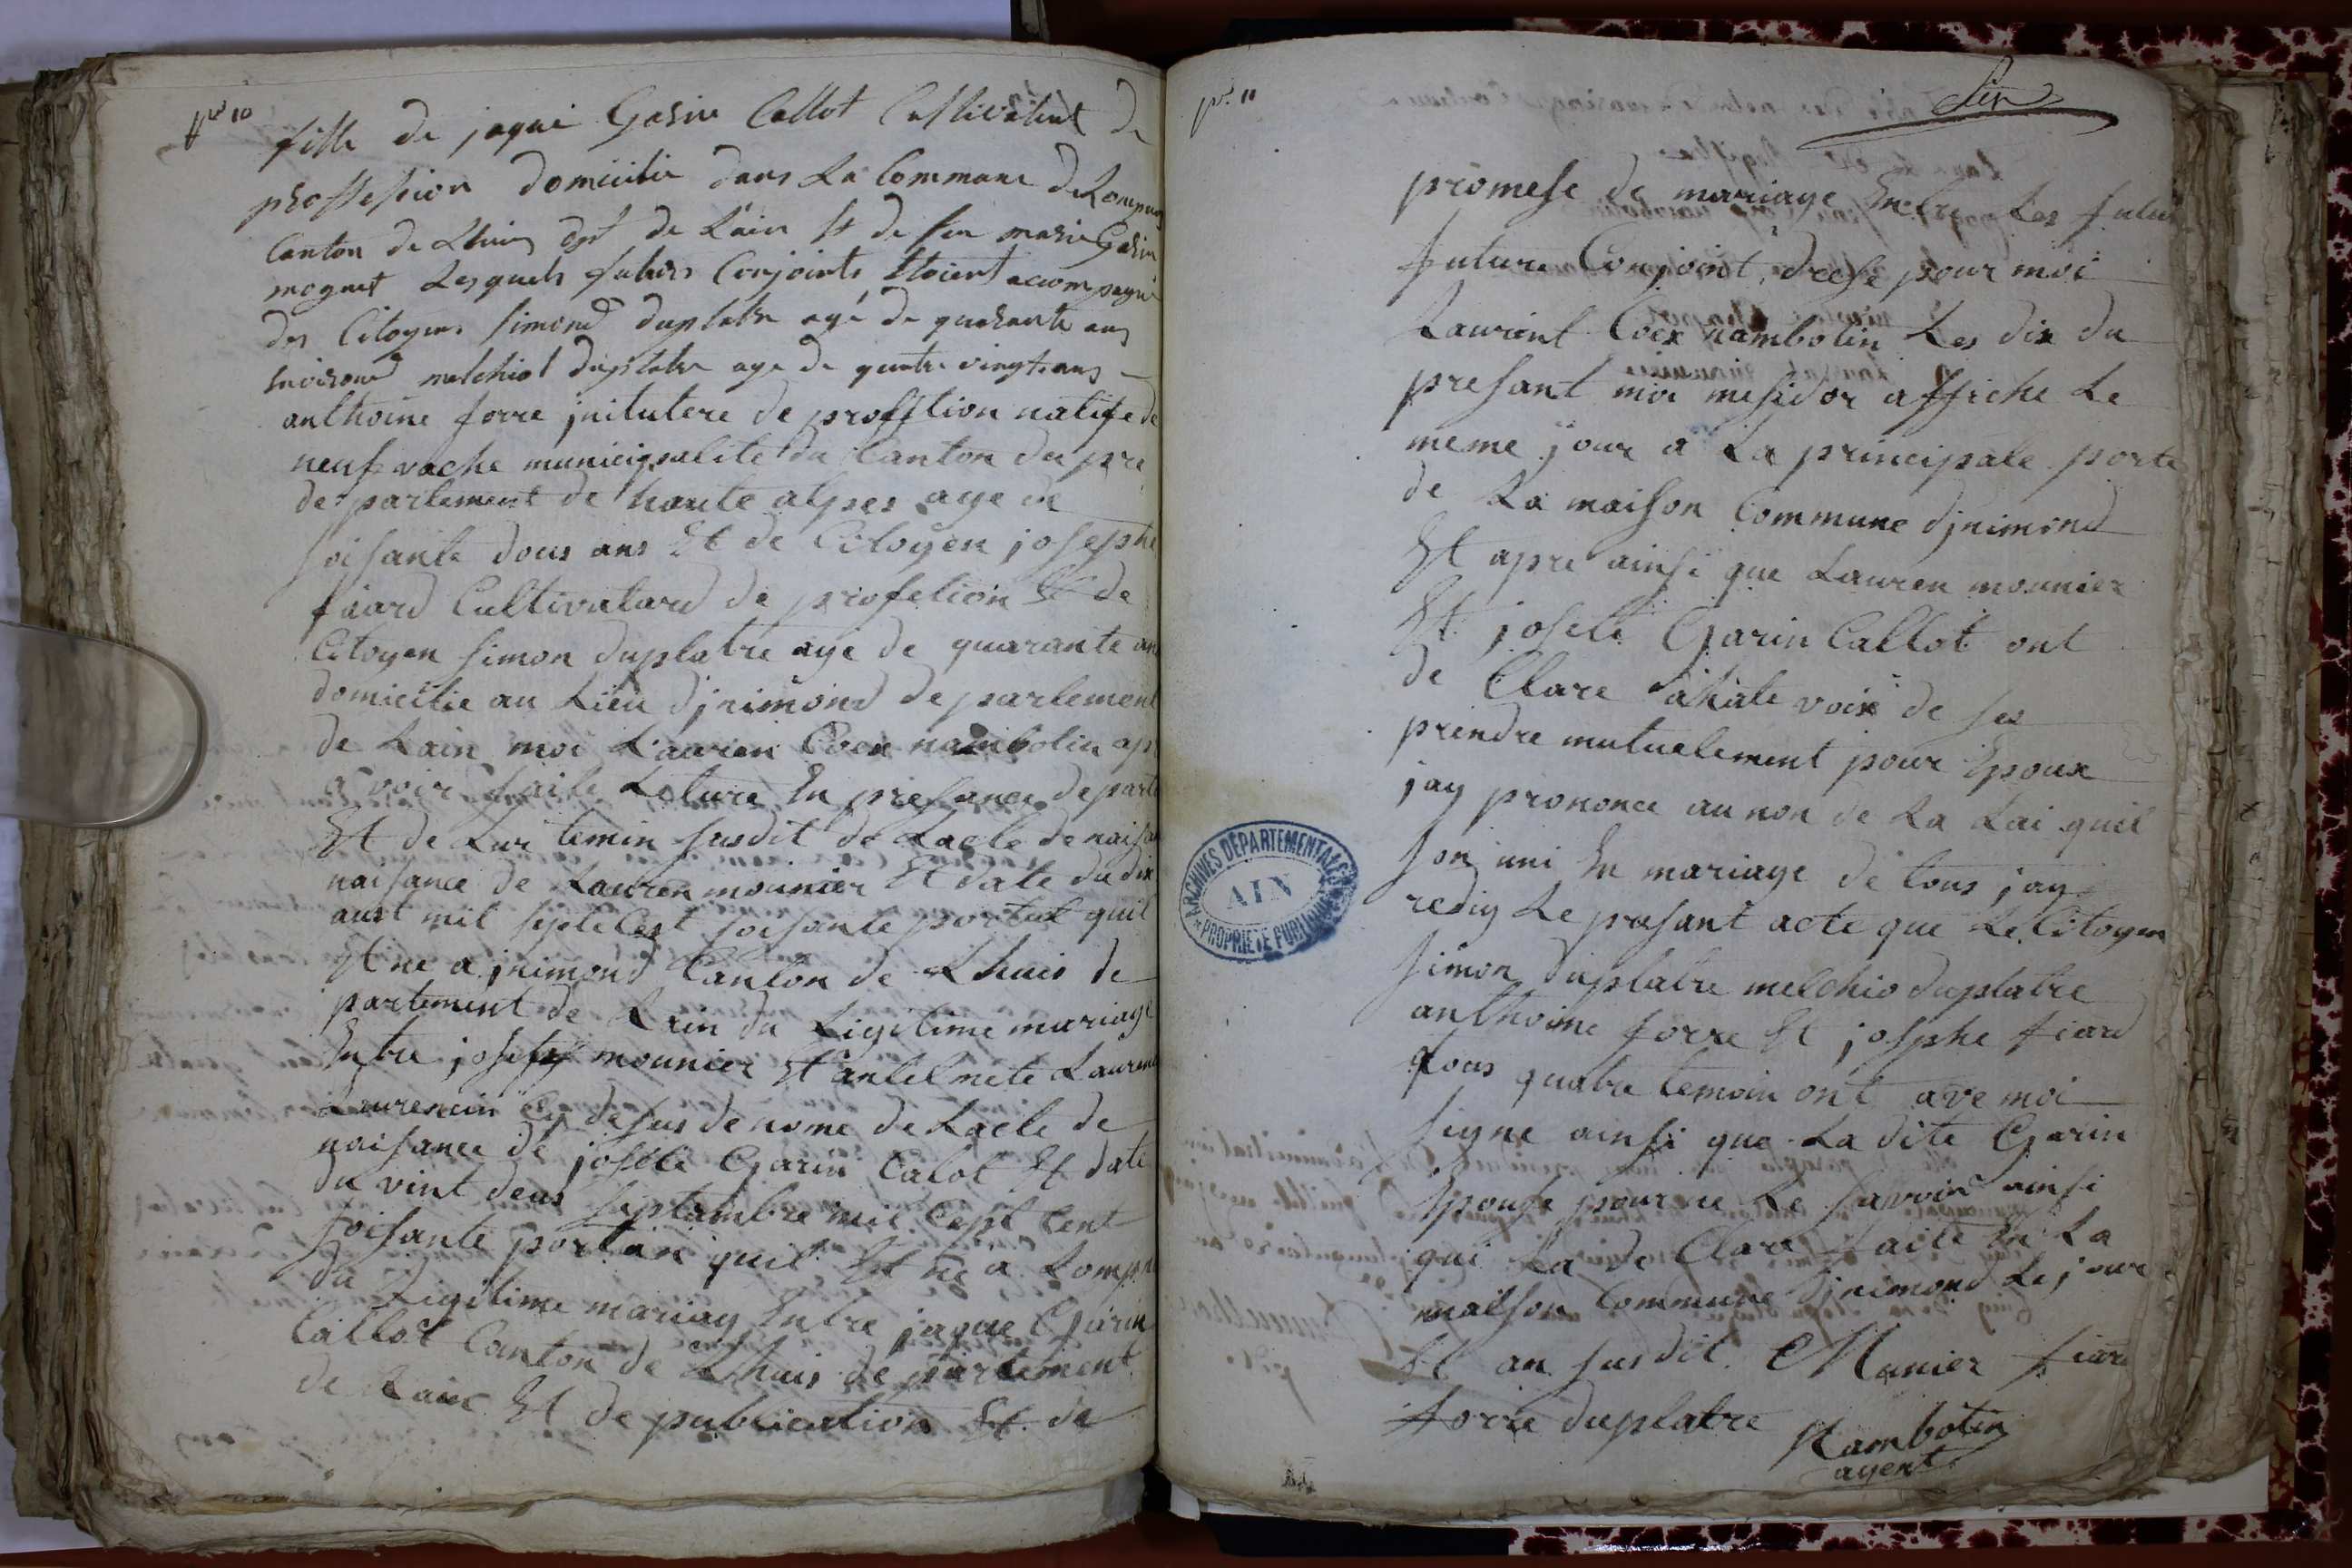 pre 10
fille de jaque Garin Callot Cultivateur de
profession domicilié dans La Commane de Lompna
Canton de Lhuis dpt de L'ain Et de feu marie Garin
mognet Lesquels futurs Conjoints Etoient accompagné
des Citoyens Simond duplatre agé de quarante ans
melchiol duplatre age de quatre vingt ans
anthoine forre jnitutere de proffition natife de
neuf vache municipalite du Canton du pre
de partement de haute alpes age de
soisante dous ans Et de Citoyen josephe
fiard Cultivatard de profetion Et de
Citoyen Simon duplatre age de quarante an
domicilie au Lieu djnimond de partement
de Lain moi Lauren Coex nambotin ap
avoir faite Leture En presance de parti
Et de Lur temin susdit de Lacte de naisa
naisance de Lauren mounier Et date du dix
aust mil septe Cest soisante portet quil
Et ne a jnimond Canton de Lhuis de
partement de Lain du Ligitime mariage
Entre joseph mounier Et antelmete Lauren
Laurencin Cy desus de nome de Lacte de
naisance de josete Garin Calot Et date
du vint deus septambre mil Cept Cent
soisante portan quil Et ne a Lompn
du Ligitime mariag Entre jaque Garin
Callot Canton de Lhuis de partement
de Lain Et de publication Et de
pr. 11
promese de mariage Entre Les futur
future Conjoint drese pour moi
Laurent Coex nambotin Les dix du
presant moi mesidor affiche Le
meme jour a La principale porte
de La maison Commune djnimond
Et apre ainsi que Lauren mounier
Et josete Garin Callot ont
de Clare ahate voix de ses
prendre mutuelement pour Epoux
jay prononce au non de La Lai quil
son uni En mariage de tous jay
redig Le presant acte que Le Citoyen
Simon duplatre melchio duplatre
anthoine forre Et josphe fiard
tous quatre temoin ont ave moi
signe ainsi que La dite Garin
Epouse pour ne Le savoir ainsi
qui La de Clare faite En La
maison Commune djnimond Le jour
Et an susdit. Munier fiard
forre duplatre
Nambotin
agent
ARCHIVES DÉPARTEMENTALES
AIN
PROPRIÉTÉ PUBLIQUE